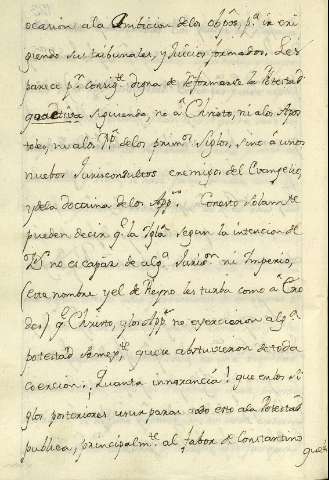 ocasion a la Ambicion de los Obpõs, pª ir eri
giendo sus tribunales, y Juicios formados. Les
parece pr consigte digna de reformarse la Potestad
siguiendo, no a Christo, ni a los Apos
toles, ni a los Pps de los primos siglos, sino a unos
nuebos Jurisconsultos enemigos del Evangelio,
y dela doctrina de los App.s Con esto solamte
pueden decir q.e la Iglª segun la intencion de
no es capaz de algª ni Imperio,
(este nombre y el de Reyno les turba como a
des) q.e Christo, y los App.s no exercieron algª
potestad q.e se abstuvieron de toda
coercion; quanta innorancia! que en los Si
glos posteriores usurparon todo esto a la Potestad
publica, principalm.te al fabor de Constantino